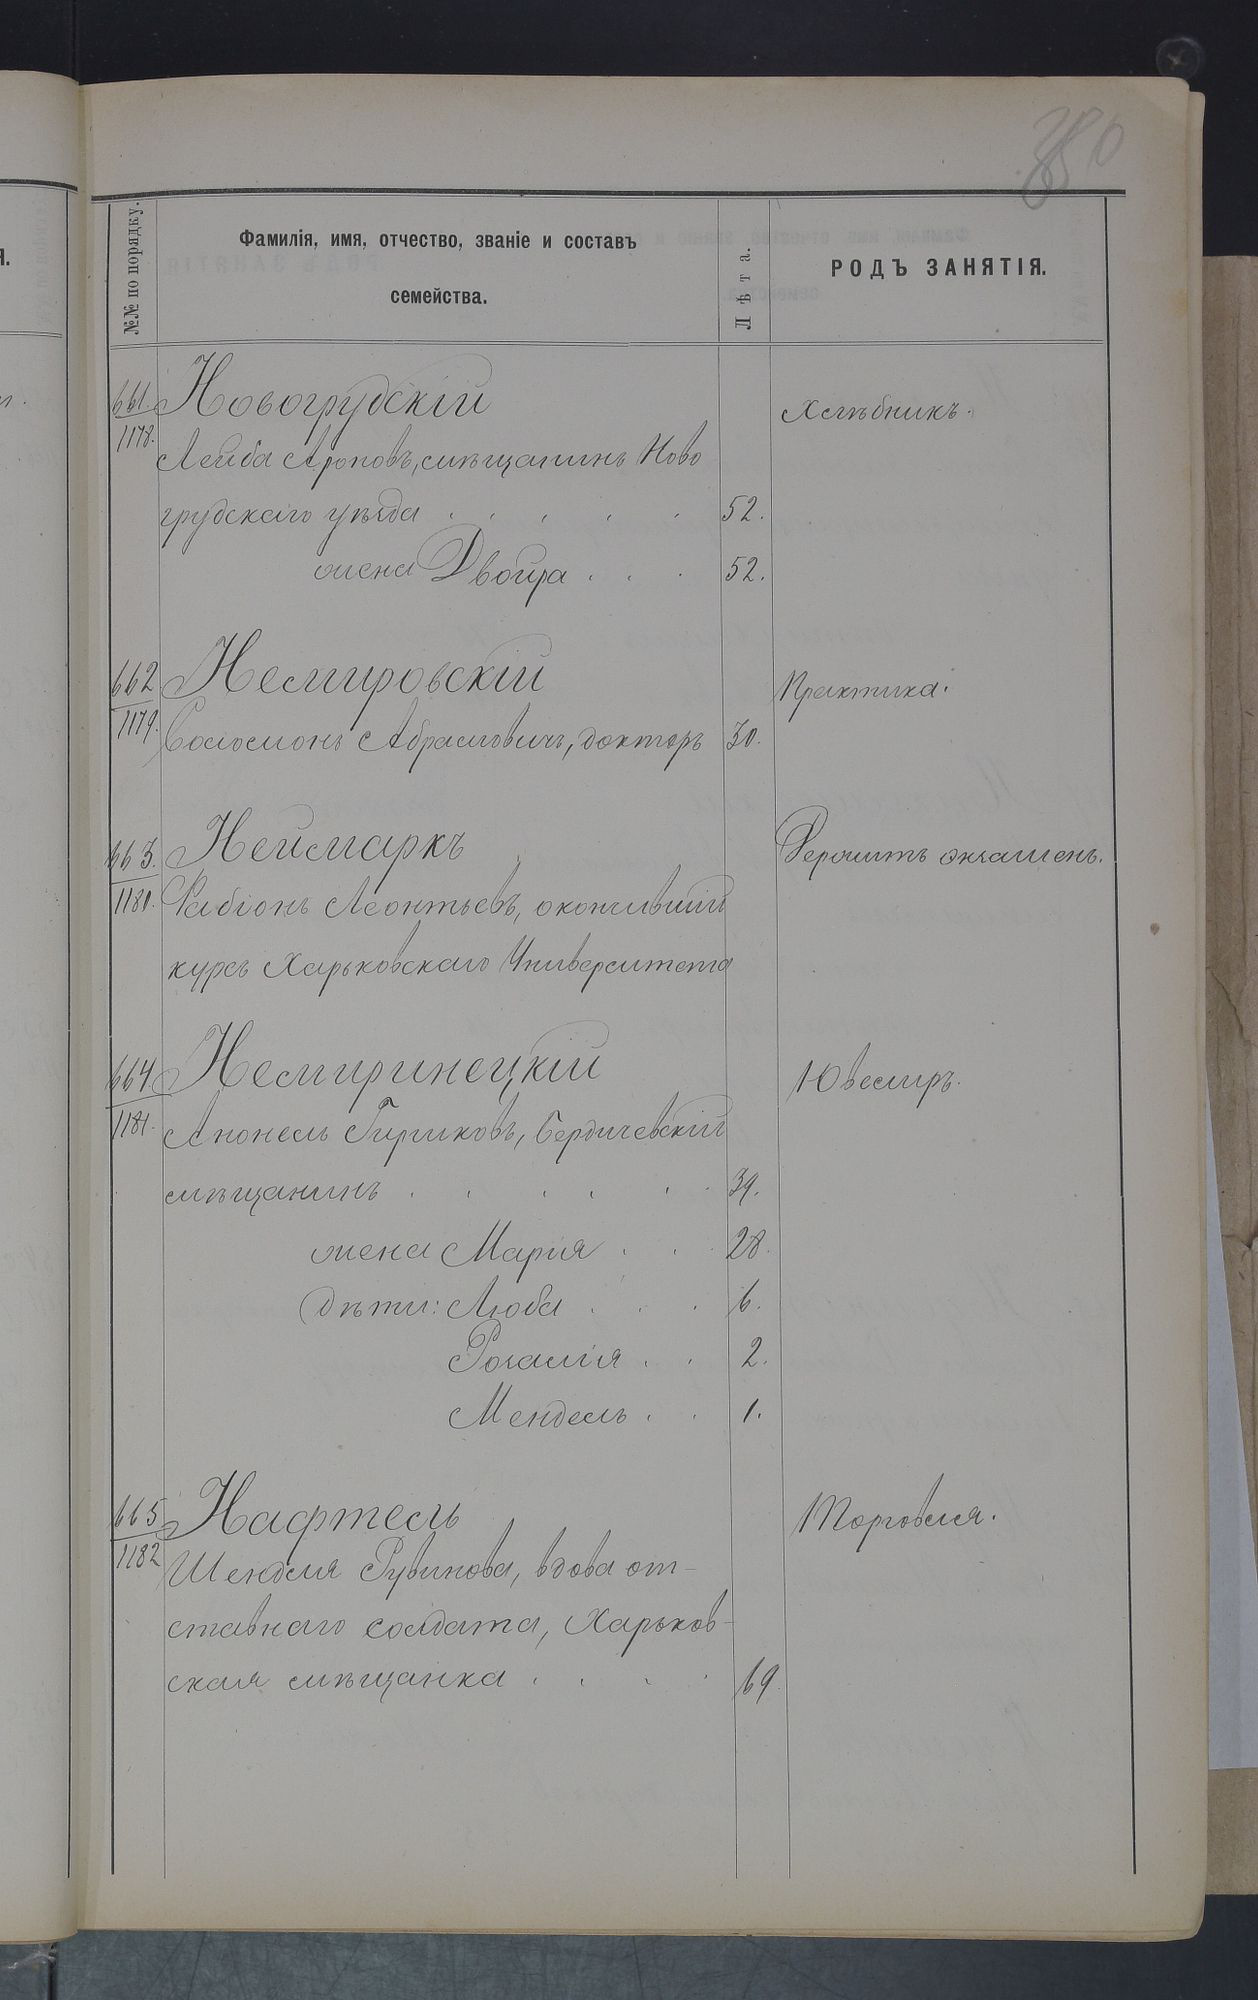 380
№№ по порядку.
Фамилія, имя, отчество, званіе и составъ
семейства.
Лѣта.
РОДЪ ЗАНЯТІЯ.
661
1178.
Новогрудскій
Хлѣбникъ.
Лейба Ароновъ, мѣщанинъ Ново
грудскаго уѣзда . . . . . 52.
жена Двойра . . . 52.
662
1179.
Немировскій
Практика.
Соломонъ Абрамовичъ, докторъ 30.
663.
1180.
Неймаркъ
Держитъ экзаменъ.
Фабіонъ Леонтьевъ, окончившій
курсъ Харьковскаго Университета
664
1181.
Немиринецкій
Ювелиръ.
Гиршковъ, Бердичевскій
мѣщанинъ . . . . . . 39.
жена Мария . . . 28.
дѣти: Люба . . . 6.
Розалія . . 2.
Мендель . . 1.
665
1182
Нафтель
Торговля.
Шендля Рувинова, вдова от-
ставнаго солдата, Харьков-
ская мѣщанка . . . . 69.